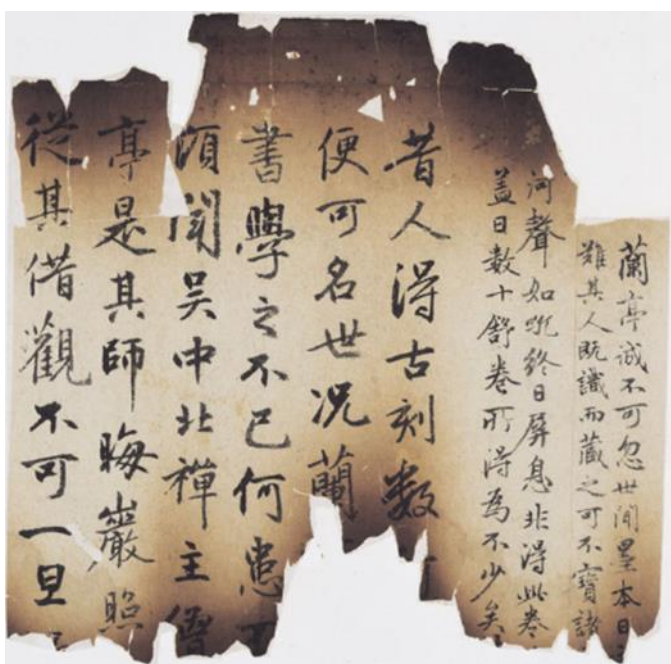 蘭亭誠不可忽世間墨本日
難其人既識而藏之可不寶諸
河聲如吼終日屏息非得此卷
蓋日數十舒卷所得為不少矣
昔人得古刻數
便可名世況蘭
書學之不已何患
頃聞吴中北禪主僧
亭是其師晦巖照
從其借觀不可一旦